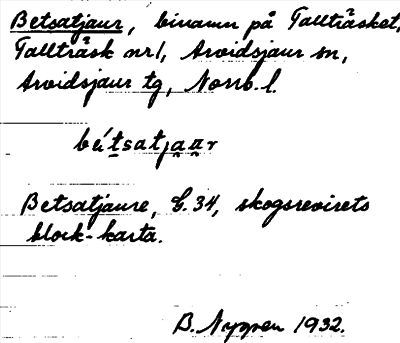 Betsatjaur, binamn på Tallträsket,
Tallträsk nr 1, Arvidsjaur sn,
Arvidsjaur tg, Norrb. l.
béi̯tsatja̯a̯r
Betsatjaure, E. 34, skogsrevirets
block-karta.
B. Nygren 1932.